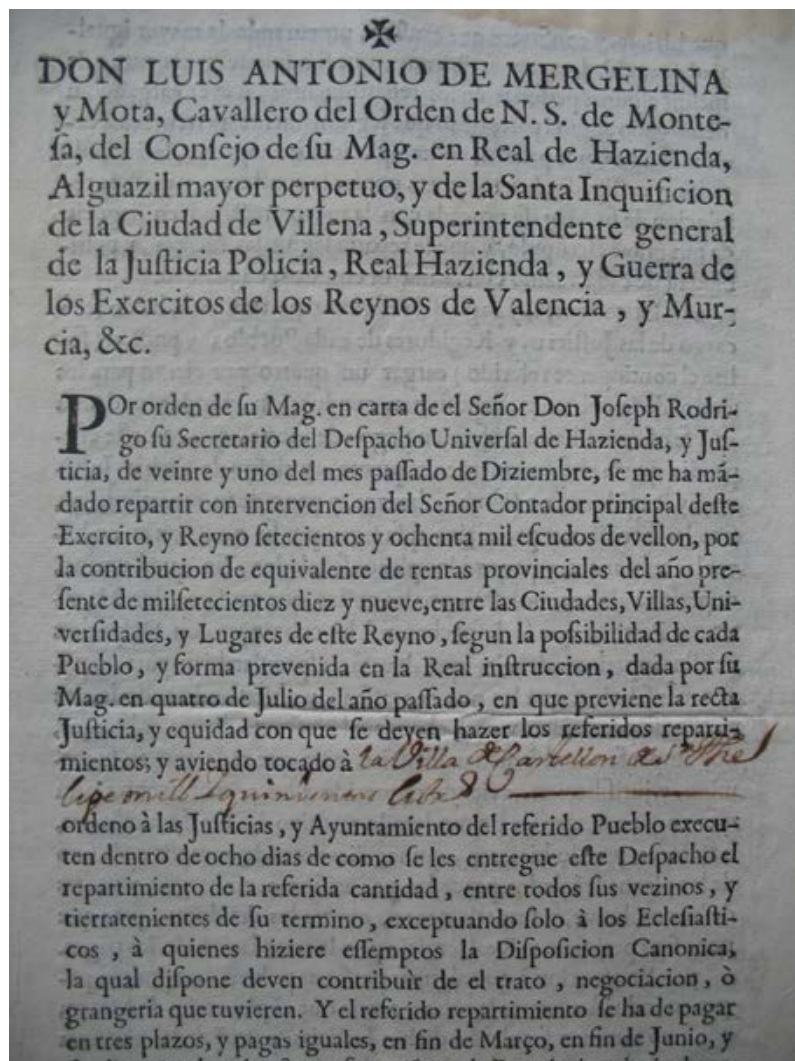 DON LUIS ANTONIO DE MERGELINA
y Mota, Cavallero del Orden de N. S. de Monte-
ſa, del Conſejo de ſu Mag. en Real de Hazienda,
Alguazil mayor perpetuo, y de la Santa Inquiſicion
de la Ciudad de Villena, Superintendente general
de la Juſticia Policia, Real Hazienda, y Guerra de
los Exercitos de los Reynos de Valencia, y Mur-
cia, &c.
POr orden de ſu Mag. en carta de el Señor Don Joſeph Rodri-
go ſu Secretario del Deſpacho Univerſal de Hazienda, y Juſ-
ticia, de veinte y uno del mes paſſado de Diziembre, ſe me ha mã-
dado repartir con intervencion del Señor Contador principal deſte
Exercito, y Reyno ſetecientos y ochenta mil eſcudos de vellon, por
la contribucion de equivalente de rentas provinciales del año pre-
ſente de milſetecientos diez y nueve, entre las Ciudades, Villas, Uni-
verſidades, y Lugares de eſte Reyno, ſegun la poſsibilidad de cada
Pueblo, y forma prevenida en la Real inſtruccion, dada por ſu
Mag. en quatro de Julio del año paſſado, en que previene la recta
Juſticia, y equidad con que ſe deven hazer los referidos reparti-
mientos; y aviendo tocado à la Villa de Castellon de Sn Phe
lipe mill y quinientos
ordeno à las Juſticias, y Ayuntamiento del referido Pueblo execu-
ten dentro de ocho dias de como ſe les entregue eſte Deſpacho el
repartimiento de la referida cantidad, entre todos ſus vezinos, y
tierratenientes de ſu termino, exceptuando ſolo à los Ecleſiaſti-
cos, à quienes hiziere eſſemptos la Diſpoſicion Canonica,
la qual diſpone deven contribuìr de el trato, negociacion, ò
grangeria que tuvieren. Y el referido repartimiento ſe ha de pagar
en tres plazos, y pagas iguales, en fin de Março, en fin de Junio, y